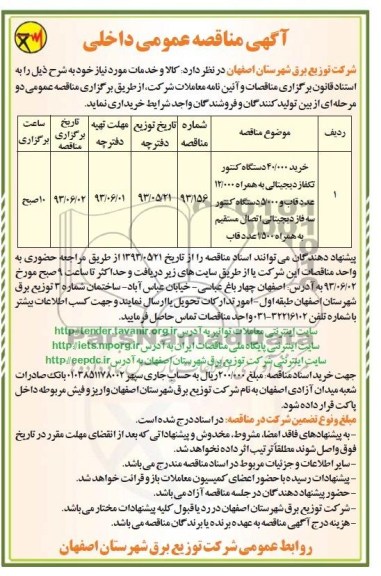 آگهی مناقصه عمومی داخلی
شرکت توزیع برق شهرستان اصفهان در نظر دارد: کالا و خدمات مورد نیاز خود به شرح ذیل را به
استناد قانون برگزاری مناقصات و آئین نامه معاملات شرکت، از طریق برگزاری مناقصه عمومی دو
مرحله ای از بین تولید کنندگان و فروشندگان واجد شرایط خریداری نماید.
ردیف موضوع مناقصه شماره مناقصه تاریخ توزیع دفترچه مهلت تهیه دفترچه تاریخ برگزاری مناقصه ساعت برگزاری
۱ خرید ۴۰/۰۰۰ دستگاه کنتور
تکفاز دیجیتالی به همراه ۱۲/۰۰۰
عدد قاب و ۵/۰۰۰ دستگاه کنتور
سه فاز دیجیتالی اتصال مستقیم
به همراه ۱۵۰۰ عدد قاب
۹۳/۱۵۶ ۹۳/۰۵/۲۱ ۹۳/۰۶/۰۱ ۹۳/۰۶/۰۲ ۱۰ صبح
پیشنهاد دهندگان می توانند اسناد مناقصه را از تاریخ ۱۳۹۳/۰۵/۲۱ از طریق مراجعه حضوری به
واحد مناقصات این شرکت یا از طریق سایت های زیر دریافت و حداکثر تا ساعت ۹ صبح مورخ
۹۳/۰۶/۰۲ به آدرس: اصفهان چهار باغ عباسی- خیابان عباس آباد- ساختمان شماره ۳ توزیع برق
شهرستان اصفهان طبقه اول- امور تدارکات تحویل یا ارسال نمایند و جهت کسب اطلاعات بیشتر
با شماره تلفن ۳۲۲۱۶۱۰۲-۰۳۱ واحد مناقصات تماس حاصل فرمایید.
سایت اینترنتی معاملات توانیر به آدرس http://tender.tavanir.org.ir
سایت اینترنتی پایگاه ملی مناقصات ایران به آدرس http://iets.mporg.ir
سایت اینترنتی شرکت توزیع برق شهرستان اصفهان به آدرس http://eepdc.ir
جهت خرید اسناد مناقصه، مبلغ ۲۰۰/۰۰۰ ریال به حساب جاری سپهر ۰۱۰۲۰۸۵۱۱۷۸۰۰۲ بانک صادرات
شعبه میدان آزادی اصفهان به نام شرکت توزیع برق شهرستان اصفهان واریز و فیش مربوطه داخل
پاکت قرار داده شود.
مبلغ و نوع تضمین شرکت در مناقصه: در اسناد درج شده است.
- به پیشنهادهای فاقد امضا، مشروط، مخدوش و پیشنهاداتی که بعد از انقضای مهلت مقرر در تاریخ
فوق واصل شوند مطلقاً ترتیب اثر داده نخواهد شد.
- سایر اطلاعات و جزئیات مربوط در اسناد مناقصه مندرج می باشد.
- پیشنهادات رسیده با حضور اعضای کمیسیون معاملات باز و قرائت خواهد شد.
- حضور پیشنهاد دهندگان در جلسه مناقصه آزاد می باشد.
- شرکت توزیع برق شهرستان اصفهان در رد یا قبول کلیه پیشنهادات مختار می باشد.
- هزینه درج آگهی مناقصه به عهده برنده یا برندگان مناقصه می باشد.
روابط عمومی شرکت توزیع برق شهرستان اصفهان